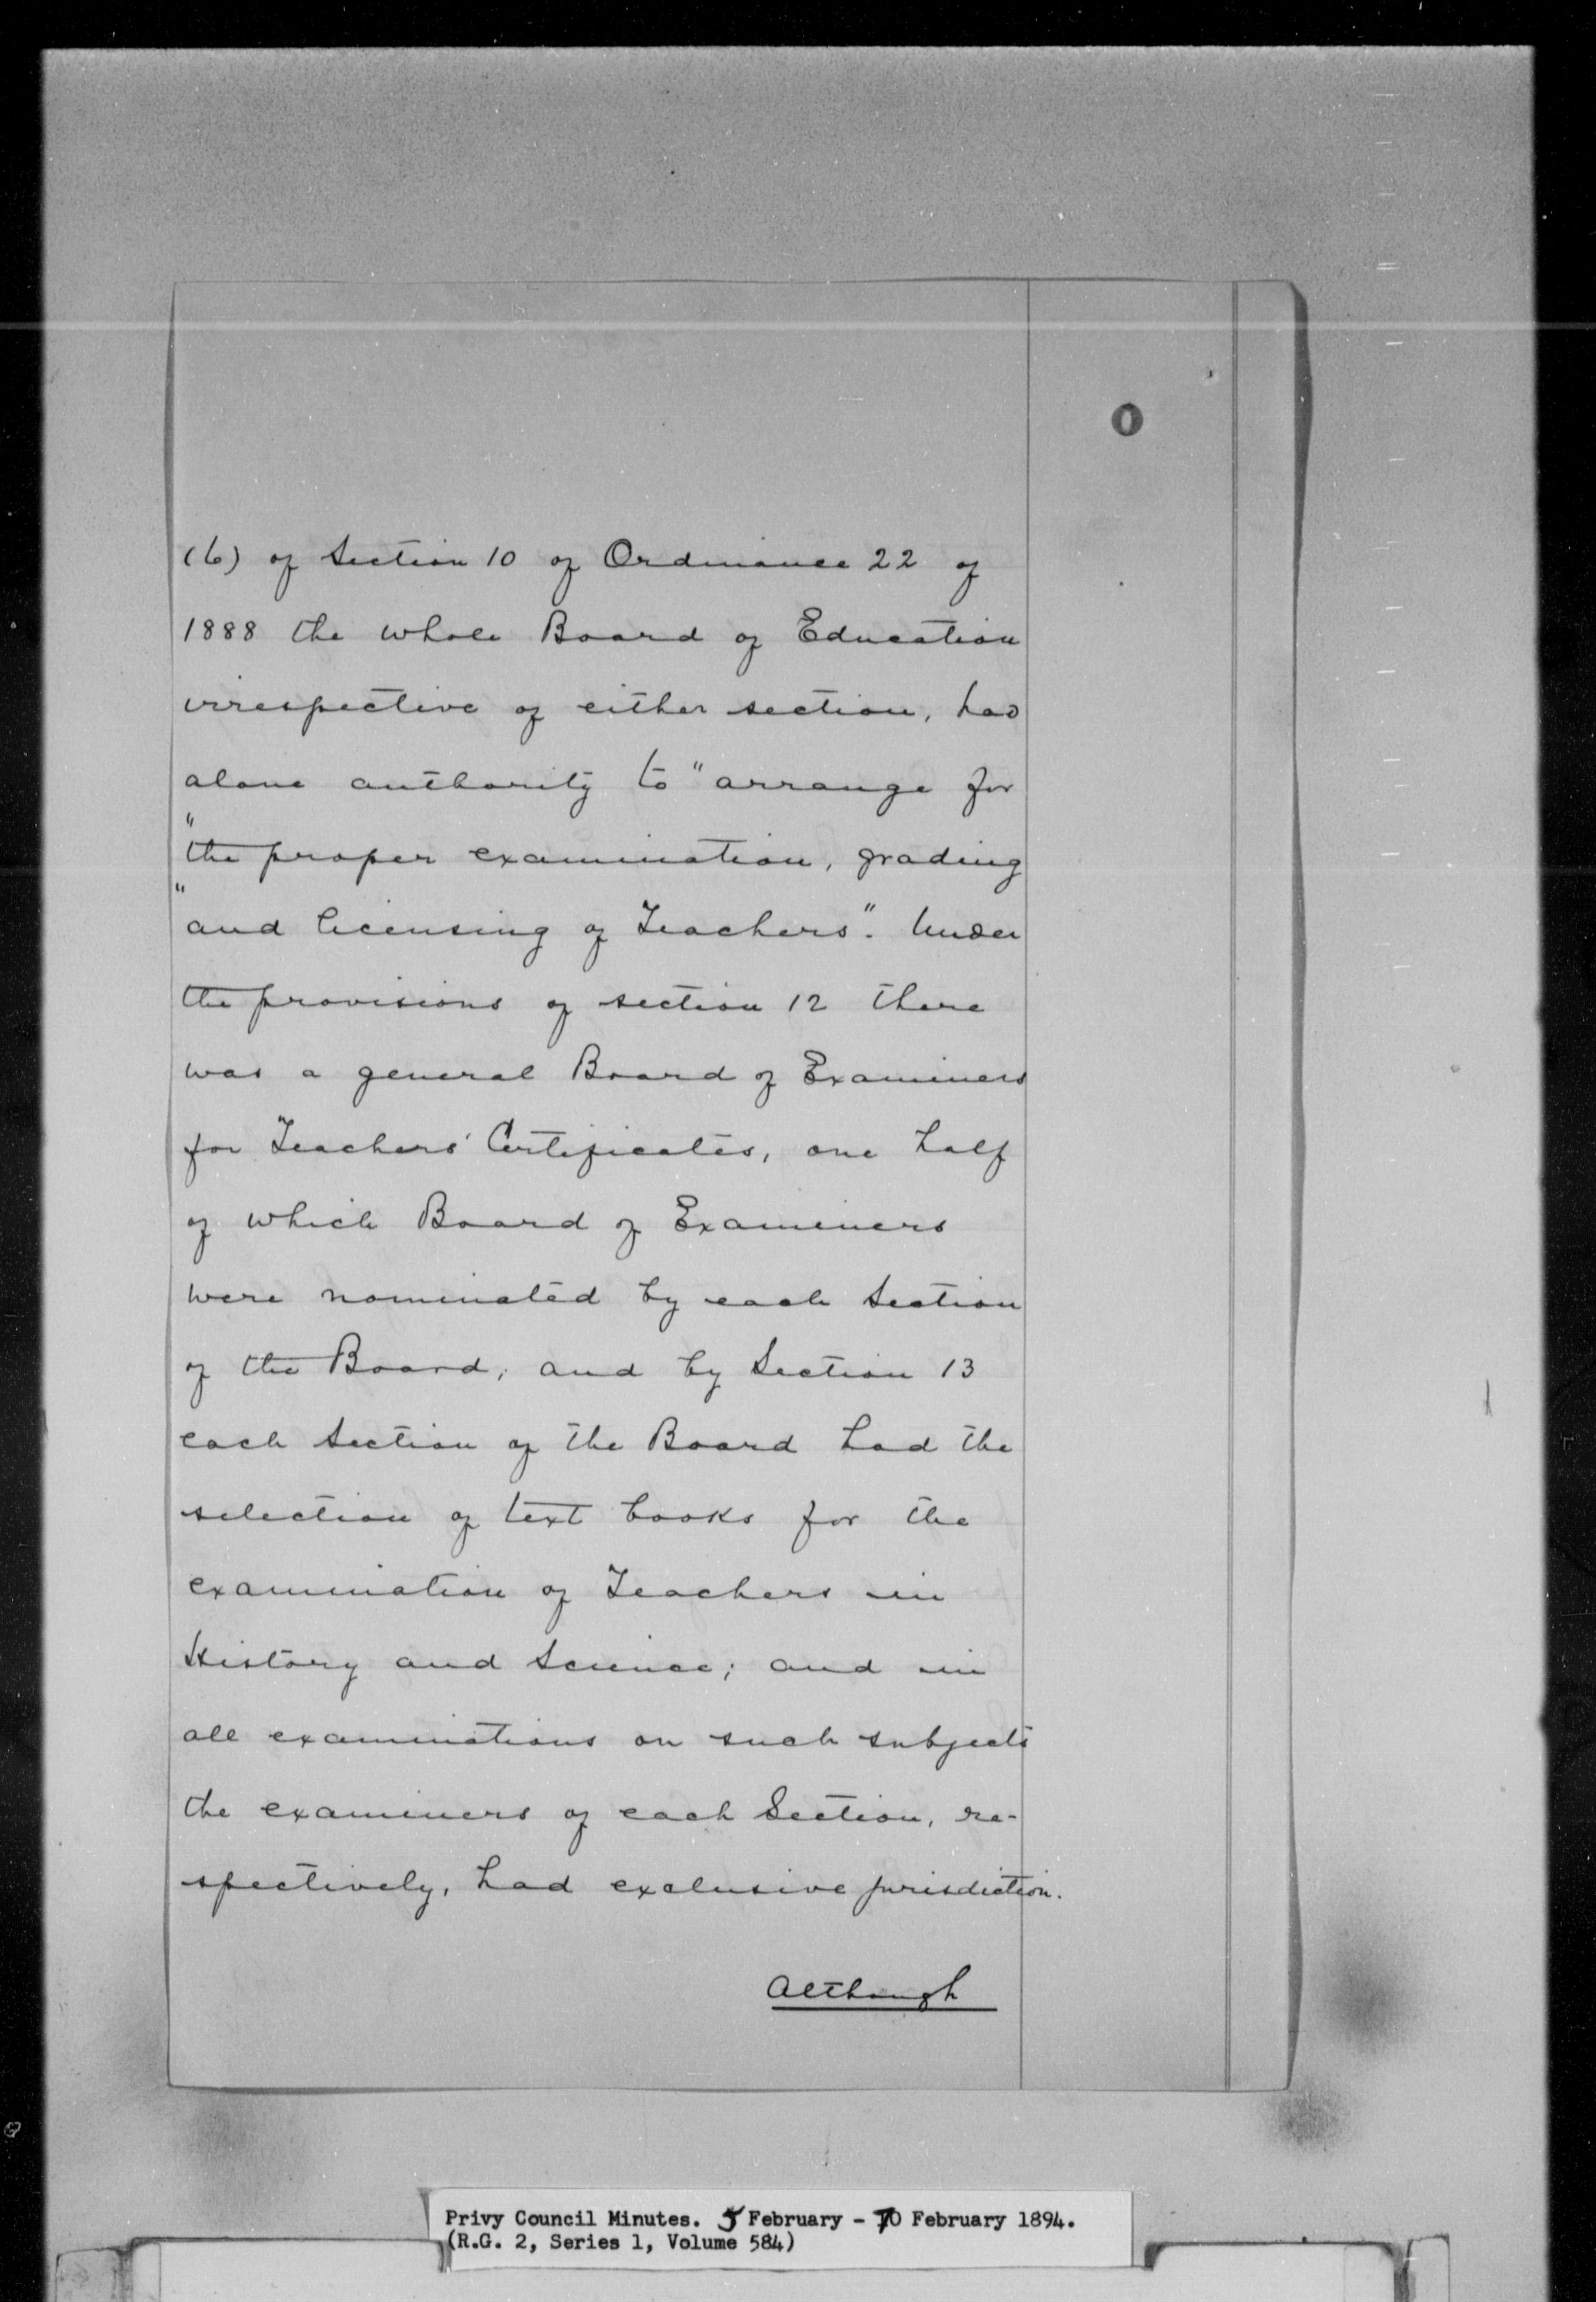 O
(6) of Section 10 of Ordinance 22 of
1888 the whole Board of Education
irrespective of either section, has
alone authority to "arrange for
"the proper examination, grading
"and licensing of Teachers". Under
the provisions of section 12 there
was a general Board of Examiners
for Teachers' Certificates, one half
of which Board of Examiners
were nominated by each Section
of the Board; and by Section 13
each Section of the Board had the
selection of text books for the
examination of Teachers in
History and Science; and in
all examinations on such subjects
the examiners of each Section, re-
spectively, had exclusive jurisdiction.
Although
Privy Council Minutes. 5 February - 10 February 1894.
(R.G. 2, Series 1, Volume 584)